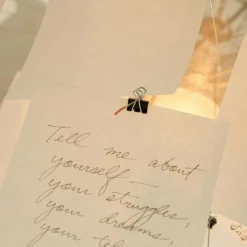 Tell me about
yourself—
your struggles,
your dreams,
your